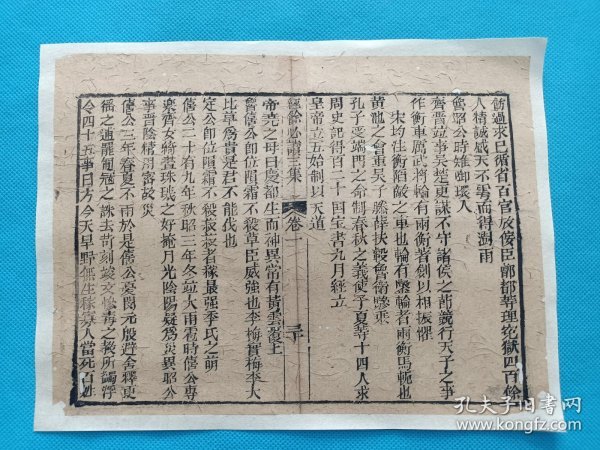 飭過求已循省百官放佞臣郭都等理寃獄四百餘
人精誠感天不雩而得澍雨
魯昭公時雉銜環人
齊晋竝爭吳楚更謀不守諸侯之節競行天子之事
作衡車厲武將輪有兩衡著劍以相振懼
宋均注衡陷敵之車也輪有鑿輪者兩衡馬軛也
黃龍之會重吳子滕薛扶轂魯衛驂乘
孔子受端門之命制春秋之義使子夏等十四人求
周史記得百二十國宝書九月經立
皇帝立五始制以天道
經餘必讀三集
卷十
三十
帝堯之母曰慶都生而神異常有黃雲覆上
魯僖公即位隕霜不殺草臣威強也李梅實梅李大
比草爲貴是君不能伐也
定公即位隕霜不殺菽菽者稼最强季氏之萌
僖公二十有九年秋昭三年冬竝大雨雹時僖公專
樂齊女綺畫珠璣之好掩月光陰陽凝爲災異昭公
事晋陰精用密故災
僖公三年春夏不雨於是僖公憂閔元服避舍釋更
徭之逋罷軍冦之誅去苛刻峻文慘毒之敎所蠲浮
令四十五事曰方今天旱野無生稼寡人當死百姓
孔夫子旧書网
www.kongfz.com